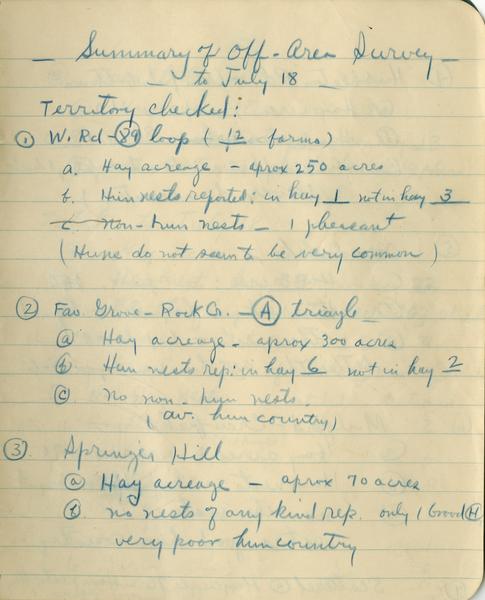 — Summary of Off-Area Survey —
— to July 18 —
Territory checked:
① W. Rd - 89 loop ( 12 farms)
a. Hay acreage - aprox 250 acres
b. Hun nests reported: in hay 1 not in hay 3
c. non-hun nests - 1 pheasant
(Huns do not seem to be very common)
② Fav. Grove - Rock Cr. - Ⓐ triangle
ⓐ Hay acreage - aprox 300 acres
ⓑ Hun nests rep: in hay 6 not in hay 2
ⓒ No non-hun nests.
(av. hun country)
③ Springer Hill
ⓐ Hay acreage - aprox 70 acres
ⓑ no nests of any kind rep. only 1 brood Ⓗ
very poor hun country